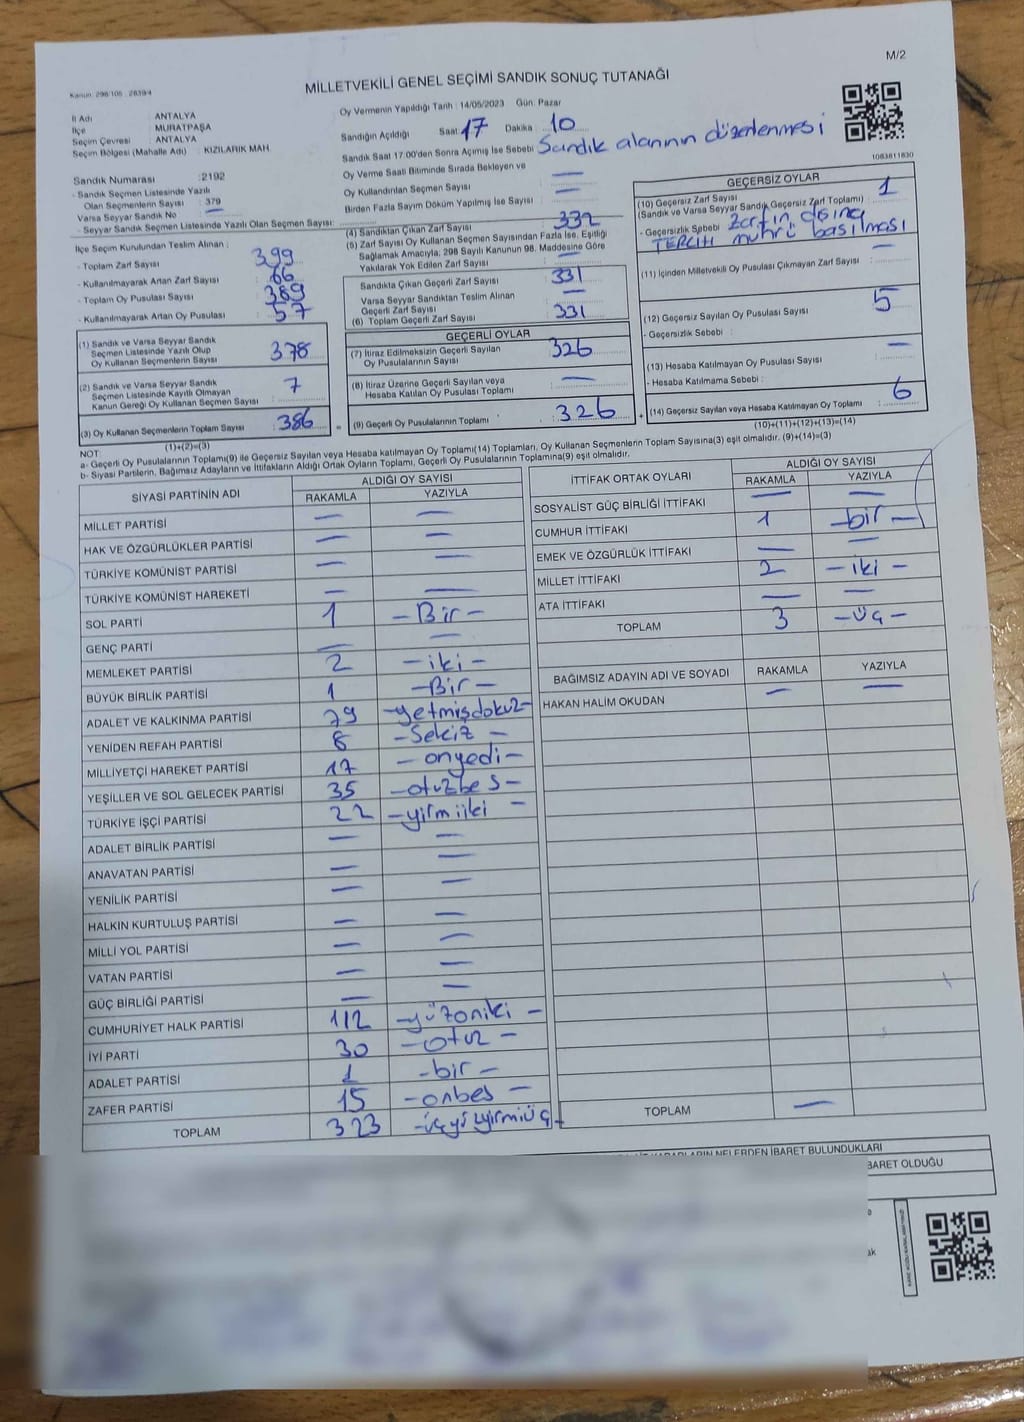 M/2
MİLLETVEKİLİ GENEL SEÇİMİ SANDIK SONUÇ TUTANAĞI
Kanun: 298/105 - 2839/4
İl Adı ANTALYA
İlçe MURATPAŞA
Seçim Çevresi ANTALYA
Seçim Bölgesi (Mahalle Adı) : KIZILARIK MAH
Oy Vermenin Yapıldığı Tarih : 14/05/2023 Gün: Pazar
Sandığın Açıldığı Saat: 17 Dakika : 10
Sandık Saat 17:00'den Sonra Açılmış İse Sebebi : Sandık alanının düzenlenmesi
Oy Verme Saati Bitiminde Sırada Bekleyen ve
Oy Kullandırılan Seçmen Sayısı : —
Birden Fazla Sayım Döküm Yapılmış İse Sayısı : —
1083811830
Sandık Numarası :2192
- Sandık Seçmen Listesinde Yazılı
Olan Seçmenlerin Sayısı : 379
Varsa Seyyar Sandık No —
- Seyyar Sandık Seçmen Listesinde Yazılı Olan Seçmen Sayısı:
İlçe Seçim Kurulundan Teslim Alınan :
- Toplam Zarf Sayısı : 399
- Kullanılmayarak Artan Zarf Sayısı : 66
- Toplam Oy Pusulası Sayısı : 389
- Kullanılmayarak Artan Oy Pusulası : 57
(1) Sandık ve Varsa Seyyar Sandık
Seçmen Listesinde Yazılı Olup
Oy Kullanan Seçmenlerin Sayısı : 378
(2) Sandık ve Varsa Seyyar Sandık
Seçmen Listesinde Kayıtlı Olmayan
Kanun Gereği Oy Kullanan Seçmen Sayısı : 7
(3) Oy Kullanan Seçmenlerin Toplam Sayısı : 386
(1)+(2)=(3)
(4) Sandıktan Çıkan Zarf Sayısı : 332
(5) Zarf Sayısı Oy Kullanan Seçmen Sayısından Fazla İse, Eşitliği
Sağlamak Amacıyla; 298 Sayılı Kanunun 98. Maddesine Göre
Yakılarak Yok Edilen Zarf Sayısı : —
Sandıkta Çıkan Geçerli Zarf Sayısı : 331
Varsa Seyyar Sandıktan Teslim Alınan
Geçerli Zarf Sayısı : —
(6) Toplam Geçerli Zarf Sayısı : 331
GEÇERLİ OYLAR
(7) İtiraz Edilmeksizin Geçerli Sayılan
Oy Pusulalarının Sayısı : 326
(8) İtiraz Üzerine Geçerli Sayılan veya
Hesaba Katılan Oy Pusulası Toplamı : —
= (9) Geçerli Oy Pusulalarının Toplamı : 326 +
GEÇERSİZ OYLAR
(10) Geçersiz Zarf Sayısı : 1
(Sandık ve Varsa Seyyar Sandık Geçersiz Zarf Toplamı)
- Geçersizlik Sebebi : Zarfın dışına
TERCİH mührü basılması
(11) İçinden Milletvekili Oy Pusulası Çıkmayan Zarf Sayısı : —
(12) Geçersiz Sayılan Oy Pusulası Sayısı : 5
- Geçersizlik Sebebi :
(13) Hesaba Katılmayan Oy Pusulası Sayısı : —
- Hesaba Katılmama Sebebi :
(14) Geçersiz Sayılan veya Hesaba Katılmayan Oy Toplamı : 6
(10)+(11)+(12)+(13)=(14)
NOT:
a- Geçerli Oy Pusulalarının Toplamı(9) ile Geçersiz Sayılan veya Hesaba katılmayan Oy Toplamı(14) Toplamları, Oy Kullanan Seçmenlerin Toplam Sayısına(3) eşit olmalıdır. (9)+(14)=(3)
b- Siyasi Partilerin, Bağımsız Adayların ve İttifakların Aldığı Ortak Oyların Toplamı, Geçerli Oy Pusulalarının Toplamına(9) eşit olmalıdır.
SİYASİ PARTİNİN ADI ALDIĞI OY SAYISI
RAKAMLA YAZIYLA
MİLLET PARTİSİ — —
HAK VE ÖZGÜRLÜKLER PARTİSİ — —
TÜRKİYE KOMÜNİST PARTİSİ — —
TÜRKİYE KOMÜNİST HAREKETİ — —
SOL PARTİ 1 — Bir —
GENÇ PARTİ — —
MEMLEKET PARTİSİ 2 — iki —
BÜYÜK BİRLİK PARTİSİ 1 — Bir —
ADALET VE KALKINMA PARTİSİ 79 — yetmişdokuz —
YENİDEN REFAH PARTİSİ 8 — Sekiz —
MİLLİYETÇİ HAREKET PARTİSİ 17 — onyedi —
YEŞİLLER VE SOL GELECEK PARTİSİ 35 — otuzbeş —
TÜRKİYE İŞÇİ PARTİSİ 22 — yirmiiki —
ADALET BİRLİK PARTİSİ — —
ANAVATAN PARTİSİ — —
YENİLİK PARTİSİ — —
HALKIN KURTULUŞ PARTİSİ — —
MİLLİ YOL PARTİSİ — —
VATAN PARTİSİ — —
GÜÇ BİRLİĞİ PARTİSİ — —
CUMHURİYET HALK PARTİSİ 112 — yüzoniki —
İYİ PARTİ 30 — otuz —
ADALET PARTİSİ 1 — bir —
ZAFER PARTİSİ 15 — onbeş —
TOPLAM 323 — üçyüzyirmiüç —
İTTİFAK ORTAK OYLARI ALDIĞI OY SAYISI
RAKAMLA YAZIYLA
SOSYALİST GÜÇ BİRLİĞİ İTTİFAKI — —
CUMHUR İTTİFAKI 1 — bir —
EMEK VE ÖZGÜRLÜK İTTİFAKI — —
MİLLET İTTİFAKI 2 — iki —
ATA İTTİFAKI — —
TOPLAM 3 — üç —
BAĞIMSIZ ADAYIN ADI VE SOYADI RAKAMLA YAZIYLA
HAKAN HALİM OKUDAN — —
TOPLAM —
NELERDEN İBARET BULUNDUKLARI
BARET OLDUĞU